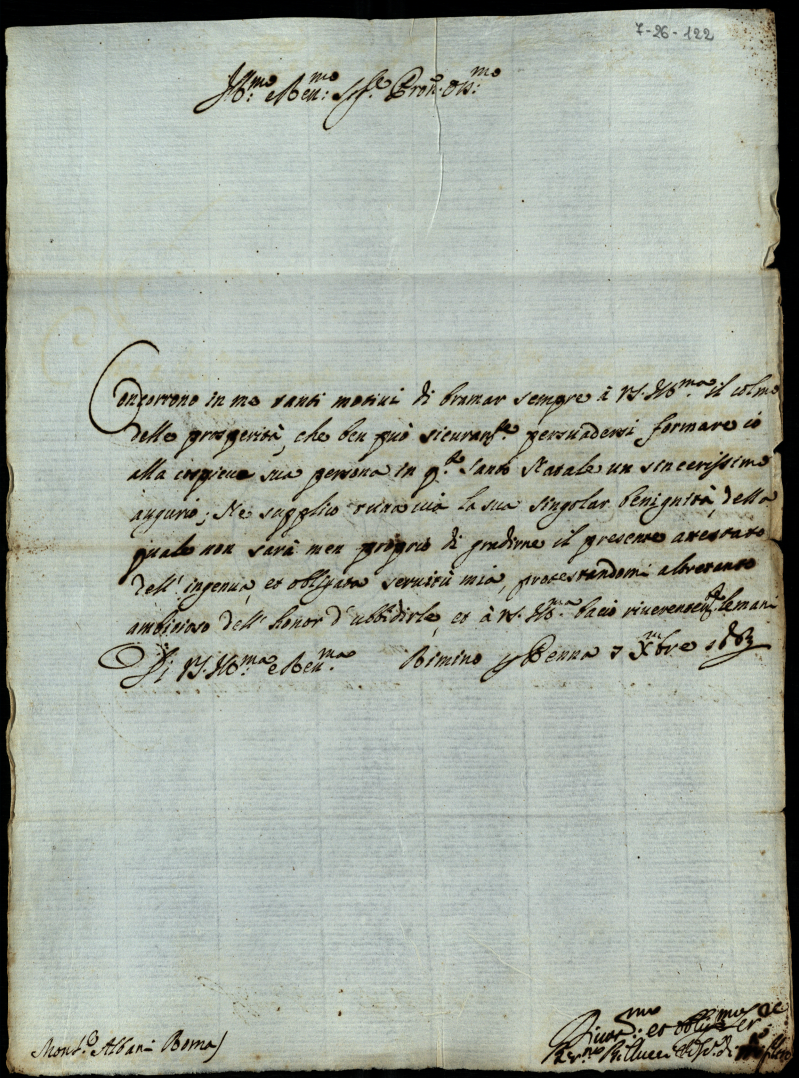 7-26-122
Ill:mo e Reu:mo Sig.re Pron. Oss:mo
Concorrono in me tanti motiui di bramar sempre à VS. Ill:ma il colmo
delle prosperità, che ben può sicuram.te persuadersi formare io
alla cospicua sua persona in q.to santo Natale un sincerissimo
augurio; Ne supplico tutta uia la sua singolar benignità, della
quale non sarà men proprio di gradirne il presente attestato
dell' ingenua, et obligata seruitù mia, protestandomi altretanto
ambitioso dell' honor d'ubbidirla, et à VS. Ill:ma bacio riuerentem.te le mani
Di VS. Ill:ma e Reu:ma Rimino Penna 7 Xbre
Mons.r Albani Roma
Diuot:mo et oblig:mo